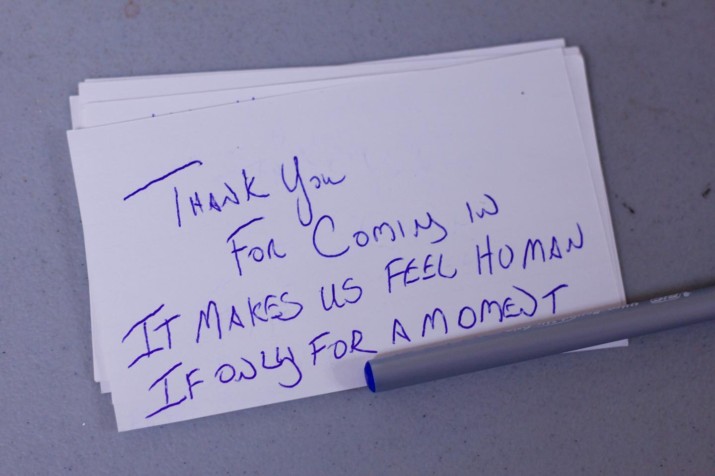 THANK You
FOR COMING IN
IT MAKES US FEEL HUMAN
IF ONLY FOR A MOMENT